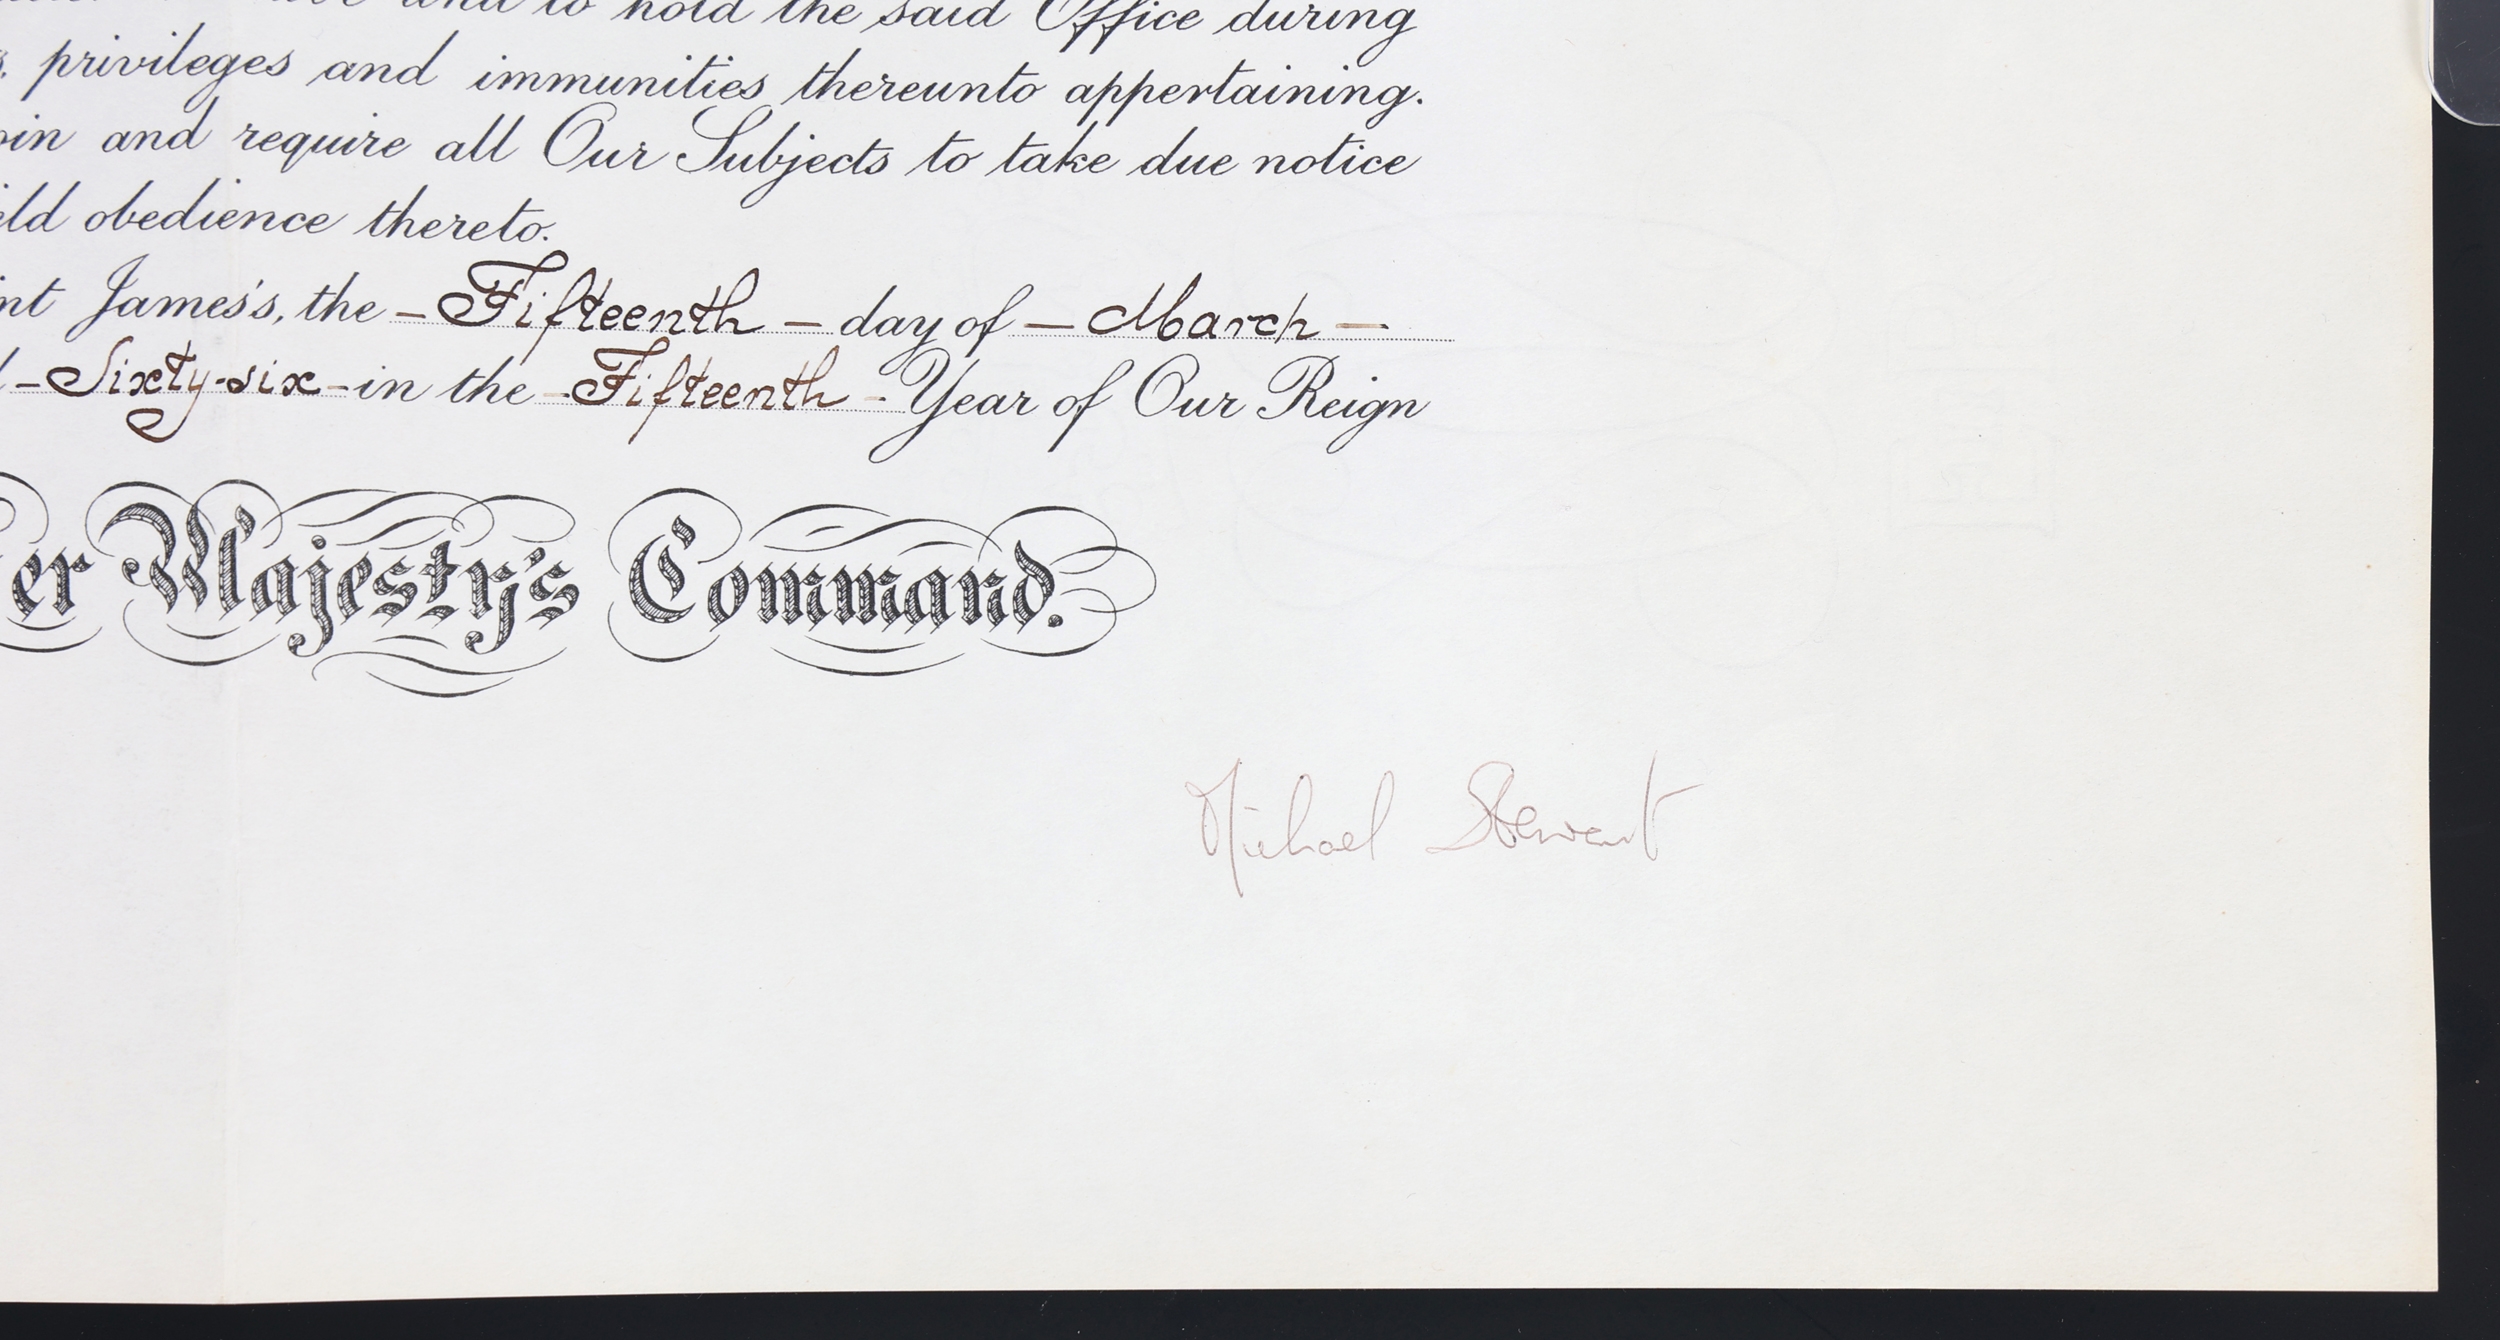 and to hold the said Office during
privileges and immunities thereunto appertaining.
and require all Our Subjects to take due notice
obedience thereto.
James's, the - Fifteenth - day of - March -
- Sixty-six - in the - Fifteenth - Year of Our Reign
Majesty's Command.
Michael Stewart